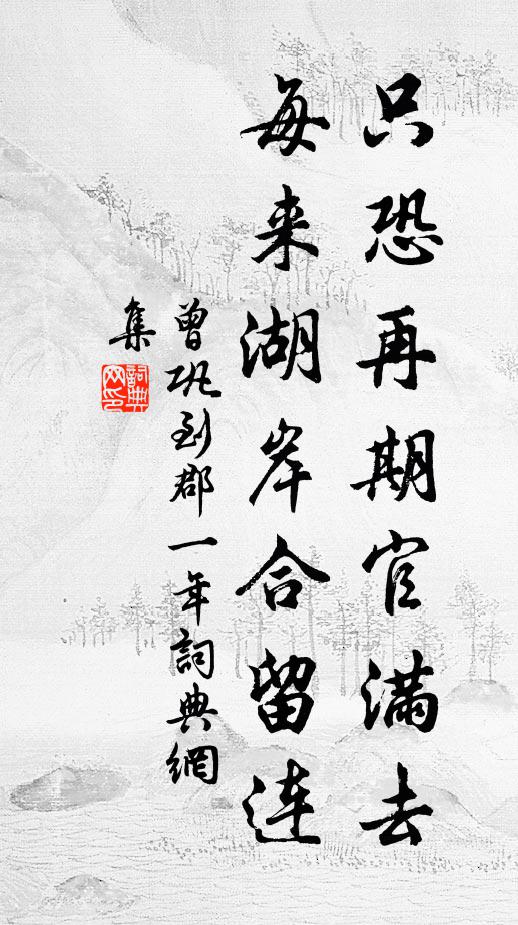 只恐再期官满去
每来湖岸合留连
曾巩到郡一年詞典網
集
詞典网印